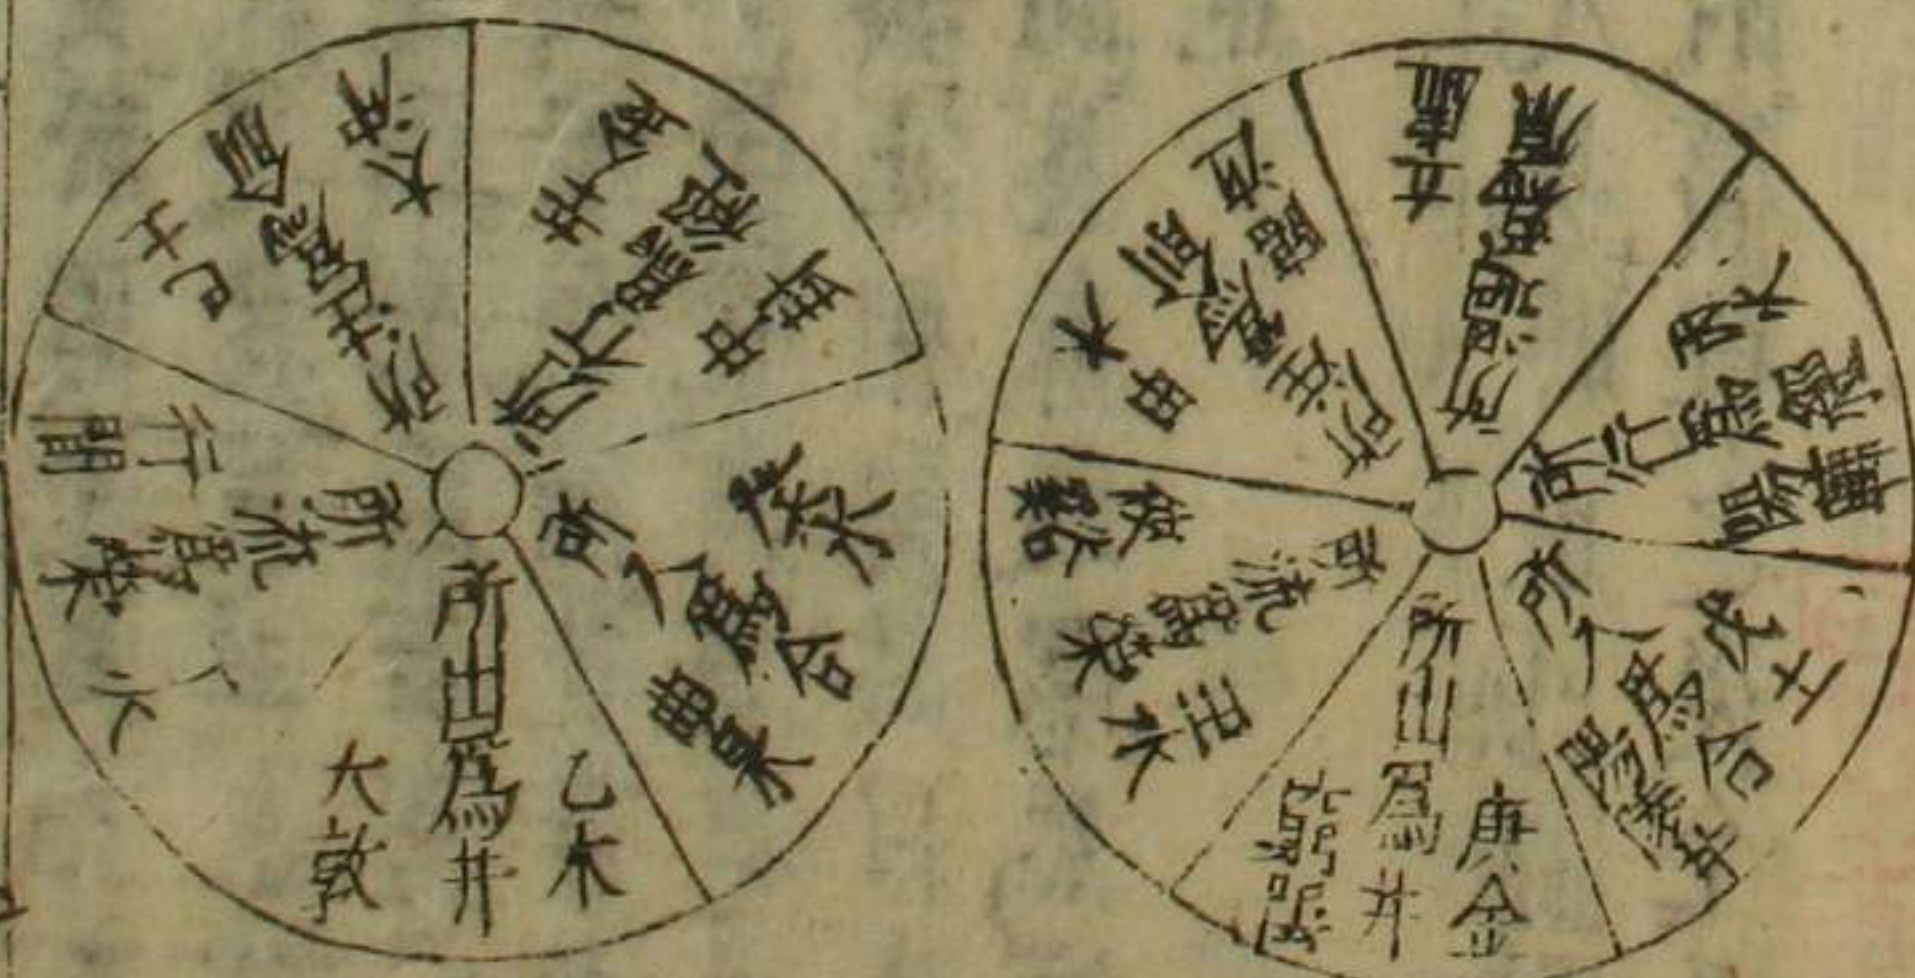 庚金
所出爲井
壬水
所流爲滎
俠谿
木甲
所注爲俞
臨泣
所過爲原
丘虛
丙火
所行爲經
陽輔
戊土
所入爲合
陽陵
乙木
所出爲井
大敦
火
所流爲滎
行間
己土
所注爲俞
太冲
金
所行爲經
中封
癸水
所入爲合
曲泉